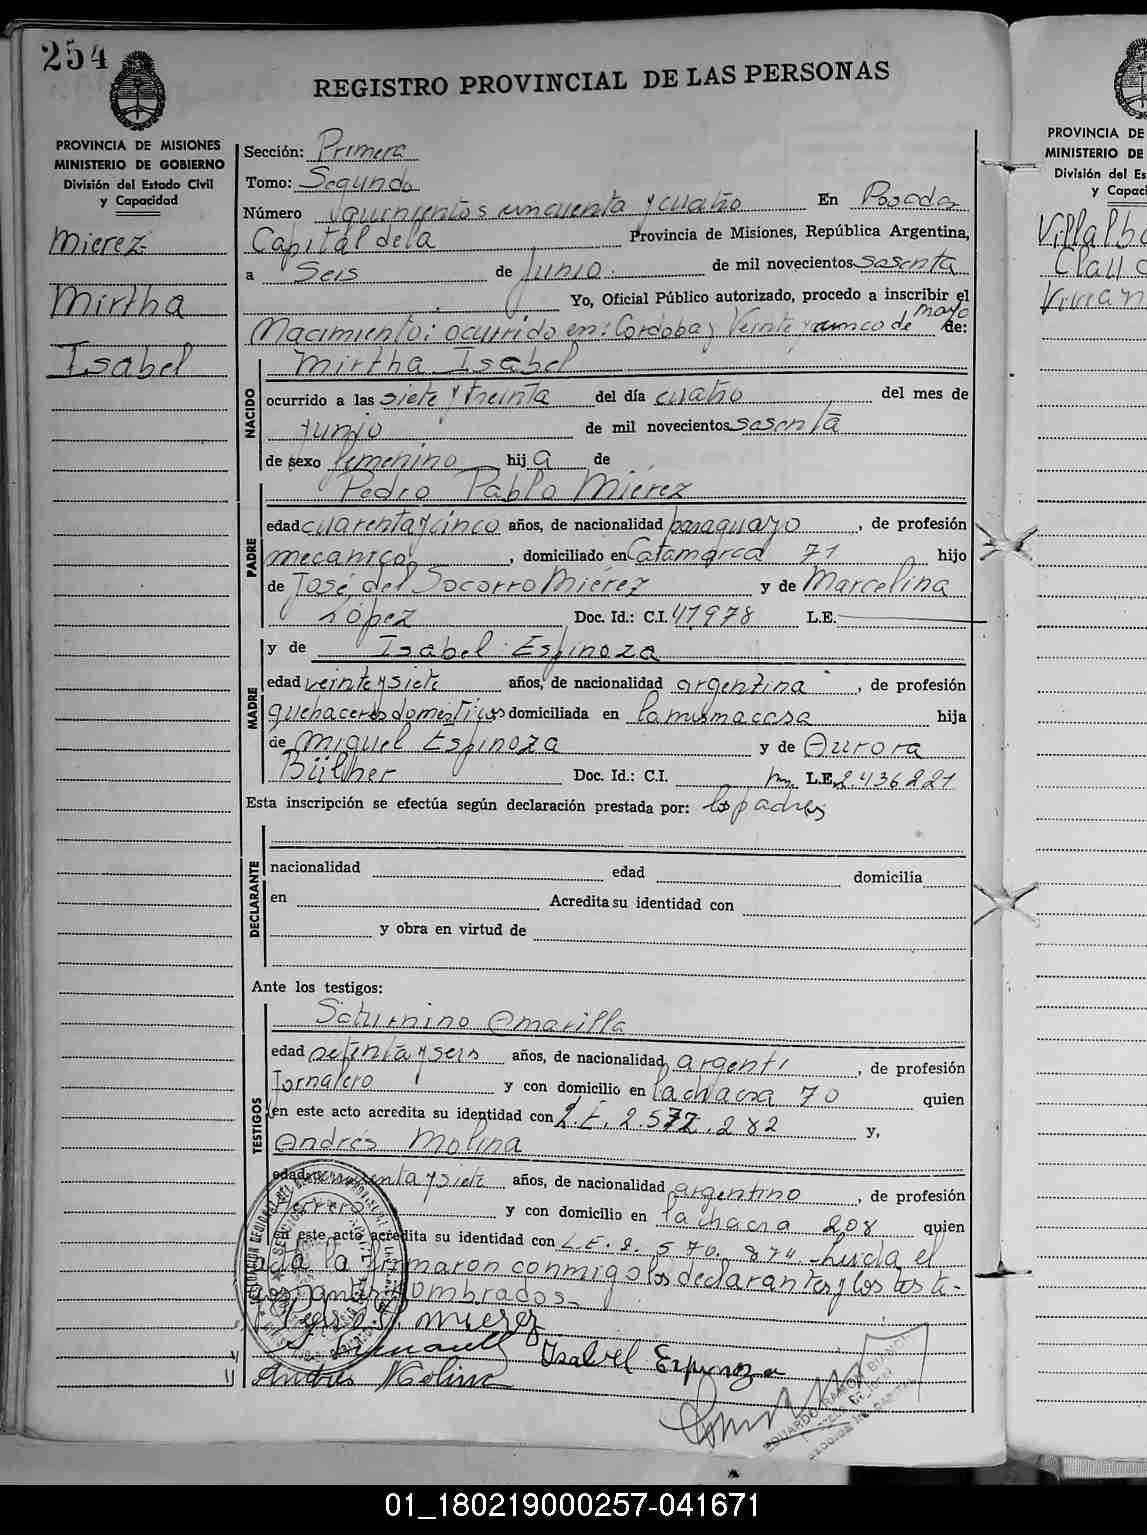 254
REGISTRO PROVINCIAL DE LAS PERSONAS
PROVINCIA DE MISIONES
MINISTERIO DE GOBIERNO
División del Estado Civil
y Capacidad
Mierez
Mirtha
Isabel
Sección: Primera
Tomo: Segundo
Número quinientos cincuenta y cuatro En Posadas
Capital de la Provincia de Misiones, República Argentina,
a Seis de Junio de mil novecientos sesenta
Yo, Oficial Público autorizado, procedo a inscribir el
Nacimiento: ocurrido en: Cordoba y Veinte y cinco de mayo de:
NACIDO
Mirtha Isabel
ocurrido a las siete y treinta del día cuatro del mes de
junio de mil novecientos sesenta
de sexo femenino hija de
PADRE
Pedro Pablo Miérez
edad cuarenta y cinco años, de nacionalidad paraguayo, de profesión
mecanico, domiciliado en Catamarca 71 hijo
de José del Socorro Miérez y de Marcelina
López Doc. Id.: C.I. 47.978 L.E.
MADRE
y de Isabel Espinoza
edad veinte y siete años, de nacionalidad argentina, de profesión
quehaceres domesticos domiciliada en la misma casa hija
de Miguel Espinoza y de Aurora
Doc. Id.: C.I. L.E. 2.436221
Esta inscripción se efectúa según declaración prestada por: los padres
DECLARANTE
nacionalidad edad domicilia
en Acredita su identidad con
y obra en virtud de
Ante los testigos:
TESTIGOS
Saturnino Amarilla
edad setenta y seis años, de nacionalidad argenti, de profesión
Jornalero y con domicilio en la chacra 70 quien
en este acto acredita su identidad con L.E. 2.572.282 y,
Andrés Molina
edad cincuenta y siete años, de nacionalidad argentino, de profesión
Herrero y con domicilio en la chacra 208 quien
en este acto acredita su identidad con L.E. 2.570.874 Leida el
acta la firmaron conmigo los declarantes y los testi-
gos antes nombrados.
Pedro P. Mierez
Isabel Espinoza
Andrés Molina
EDUARDO RAMON
PROVINCIA DE
MINISTERIO DE
División del Es
y Capac
Villalb
Clau
Vivian
01_180219000257-041671